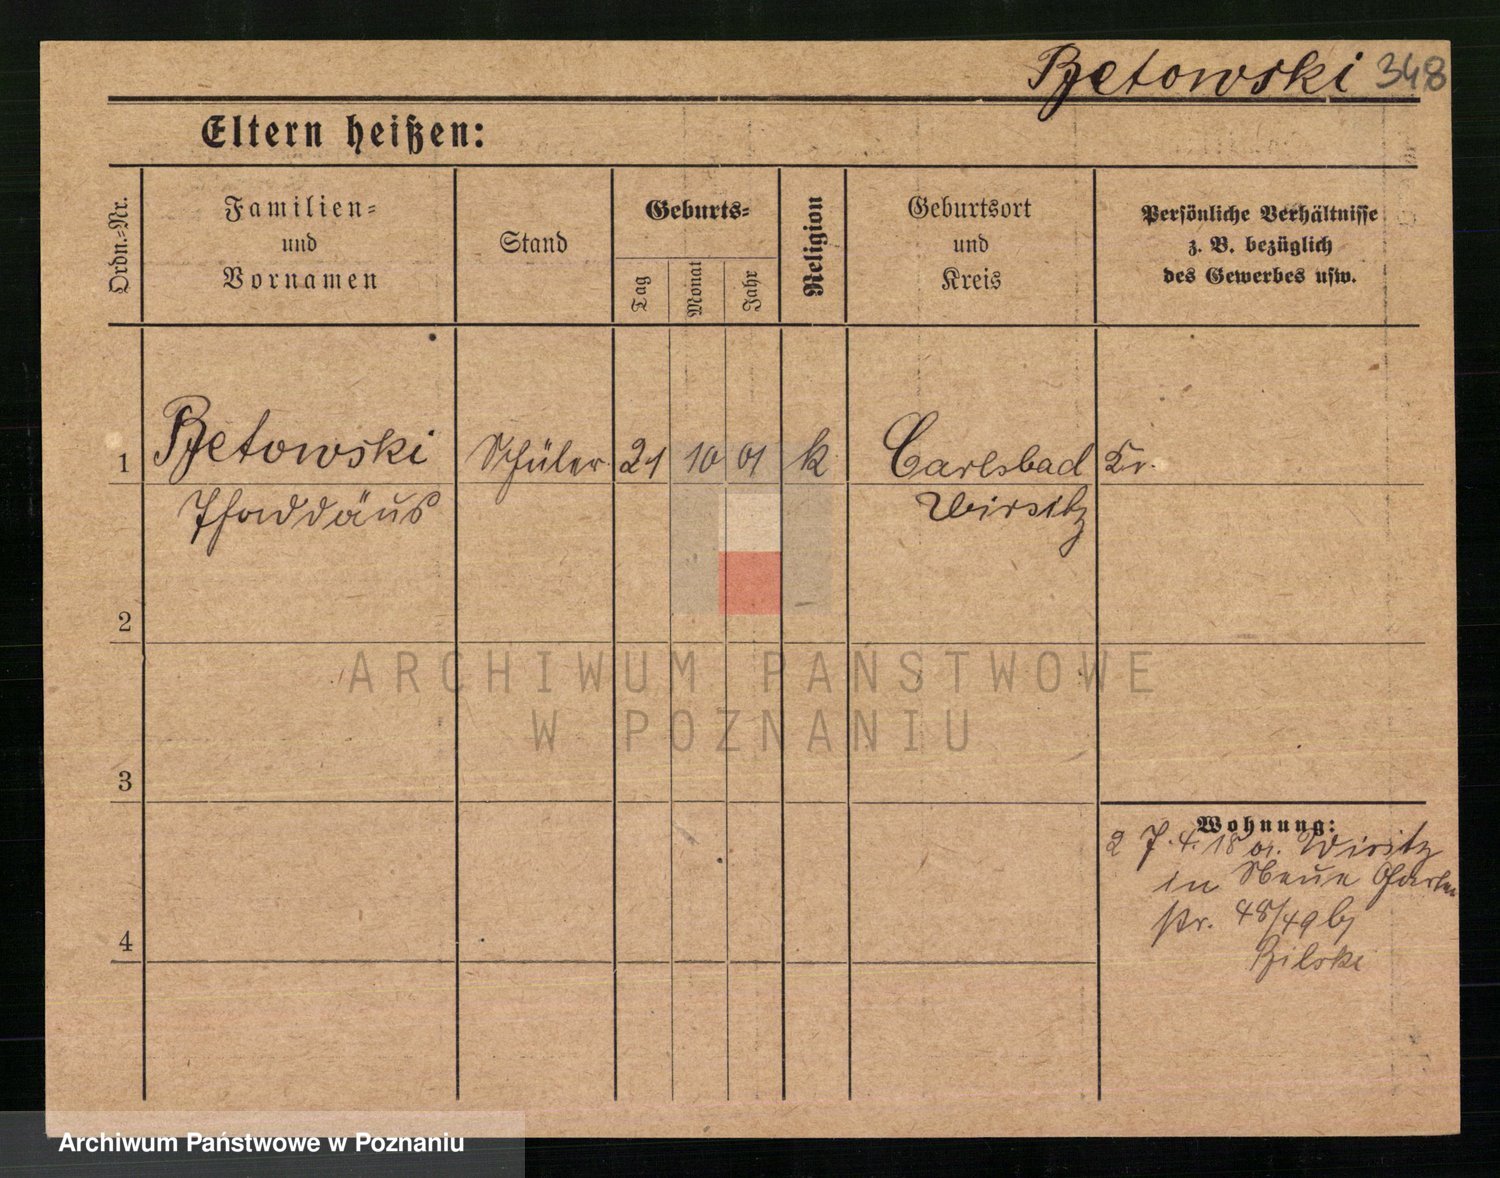 Bętowski 348
Eltern heißen:
Ordn.=Nr.
Familien=
und
Vornamen
Stand
Geburts=
Tag
Monat
Jahr
Religion
Geburtsort
und
Kreis
Persönliche Verhältnisse
z. B. bezüglich
des Gewerbes usw.
1 Bętowski Schüler 21 10 01 k Carlsbad Kr.
Thaddäus Wirsitz
2
ARCHIWUM PAŃSTWOWE
W POZNANIU
3
Wohnung:
2 7.4.18 Wirsitz
in Neue Garten
str. 48/49 b/
Bilski
4
Archiwum Państwowe w Poznaniu